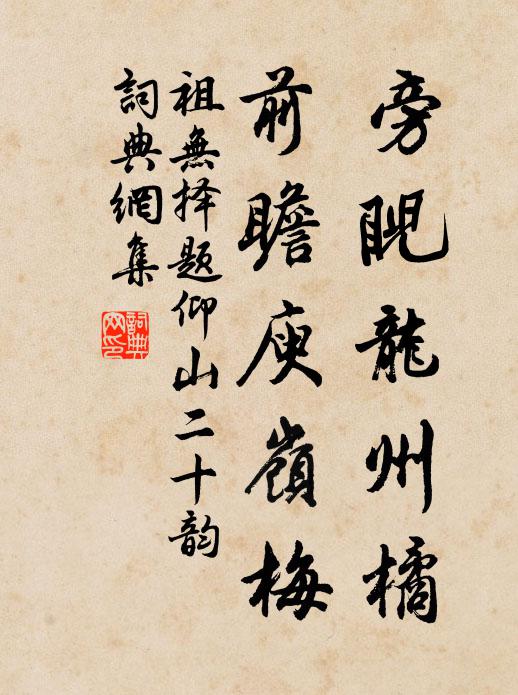 旁睨龍州橘
前瞻庾嶺梅
祖無择題仰山二十韵
詞典網集
詞典網印